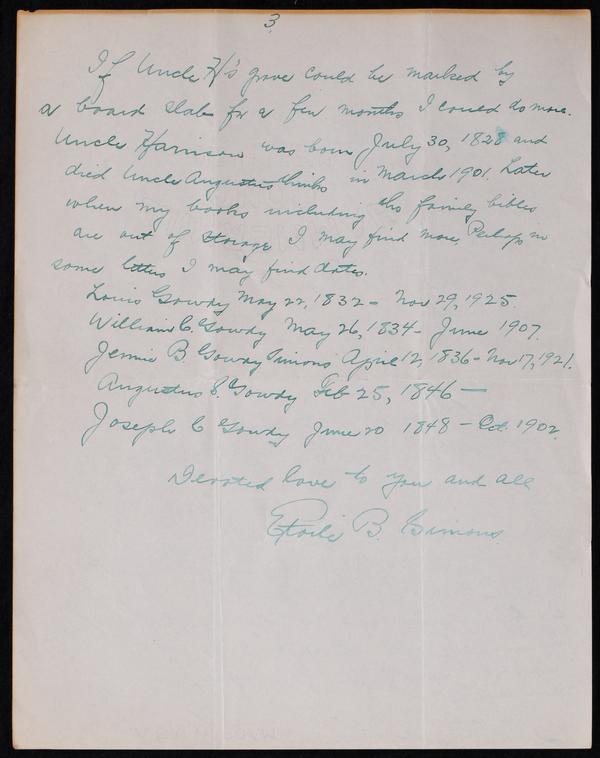 3
If Uncle H's grave could be marked by
a board slab for a few months I could do more.
Uncle Harrison was born July 30, 1828 and
died Uncle Augustus thinks in March 1901. Later
when my books including the family bibles
are out of storage I may find more, Perhaps in
some letters I may find dates.
Louis Gowdy May 22, 1832 - Nov 29, 1925.
William C. Gowdy May 26, 1834 - June 1907.
Jennie B. Gowdy Simons April 12, 1836 - Nov 17, 1921.
Augustus S. Gowdy Feb 25, 1846 -
Joseph C Gowdy June 20 1848 - Oct. 1902.
Devoted love to you and all
B. Simons